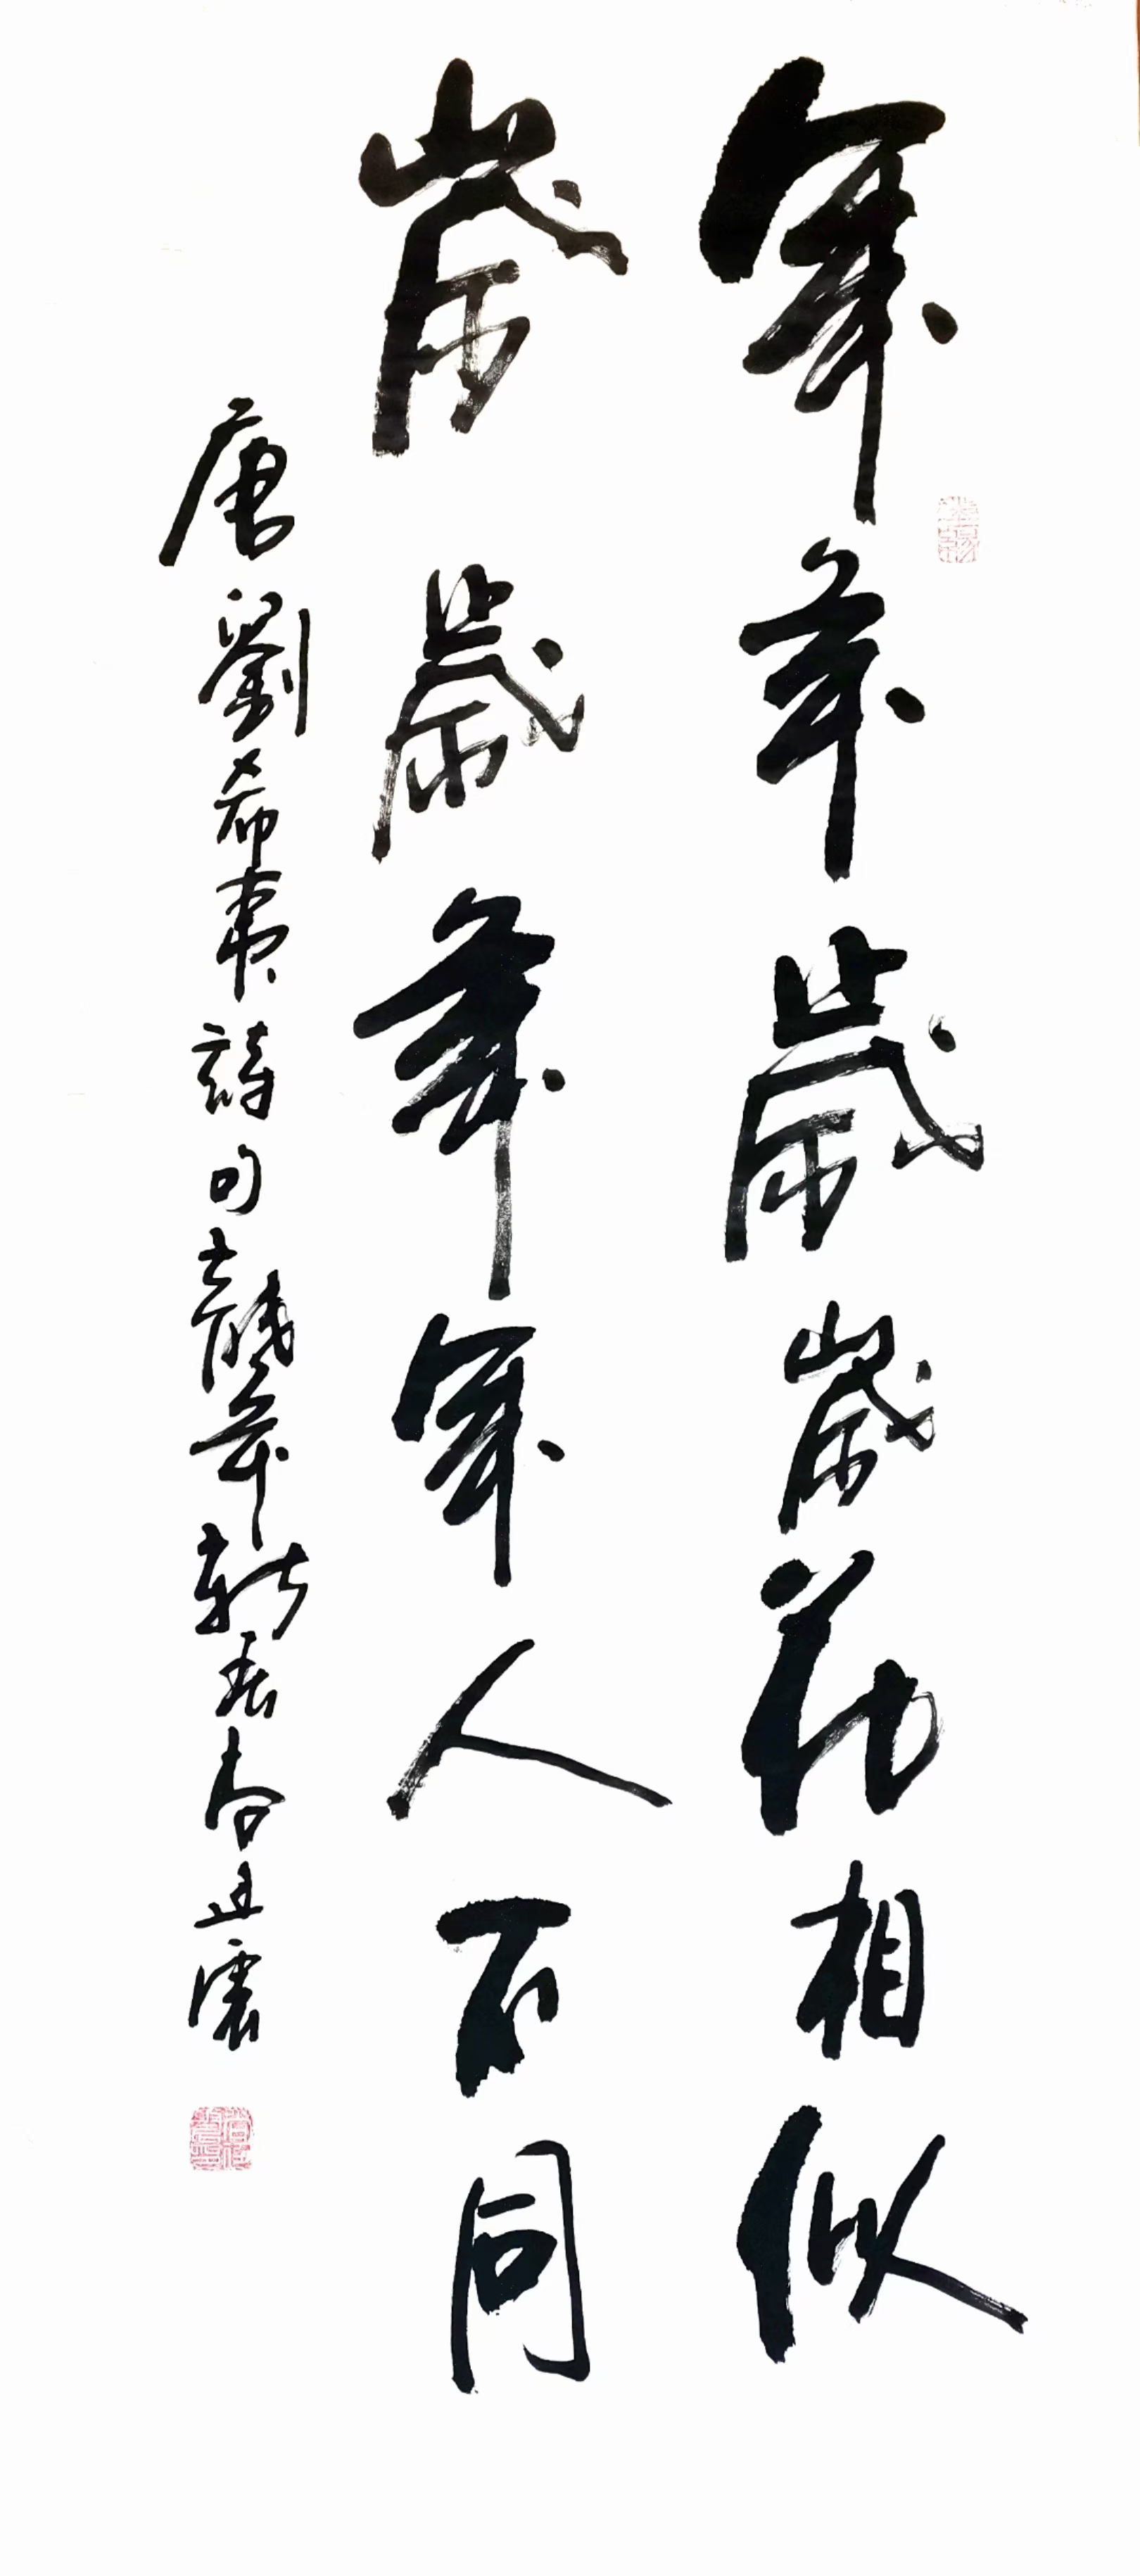 年年歲歲花相似
歲歲年年人不同
唐劉希夷詩句歲華新春